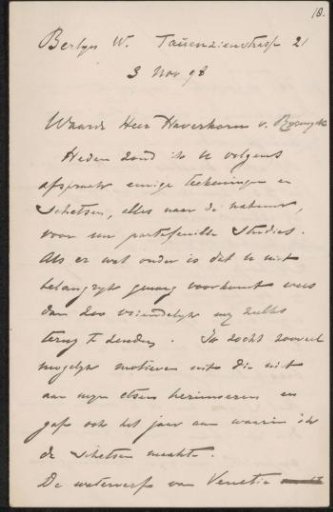 18.
Berlijn W. Tauenzienstrasse 21
3 Nov 98
Waarde Heer Haverkorn v. Rijsewijk
Heden zond ik U volgens
afspraak eenige teekeningen en
schetsen, alles naar de natuur,
voor uw portefeuille studies.
Als er wat onder is dat U niet
belangrijk genoeg voorkomt wees
dan zoo vriendelijk mij zulks
terug te zenden. Ik zocht zooveel
mogelijk motieven uit die niet
aan mijn etsen herinneren en
gaf ook het jaar aan waarin ik
de schetsen maakte.
De waterwerf van Venetie